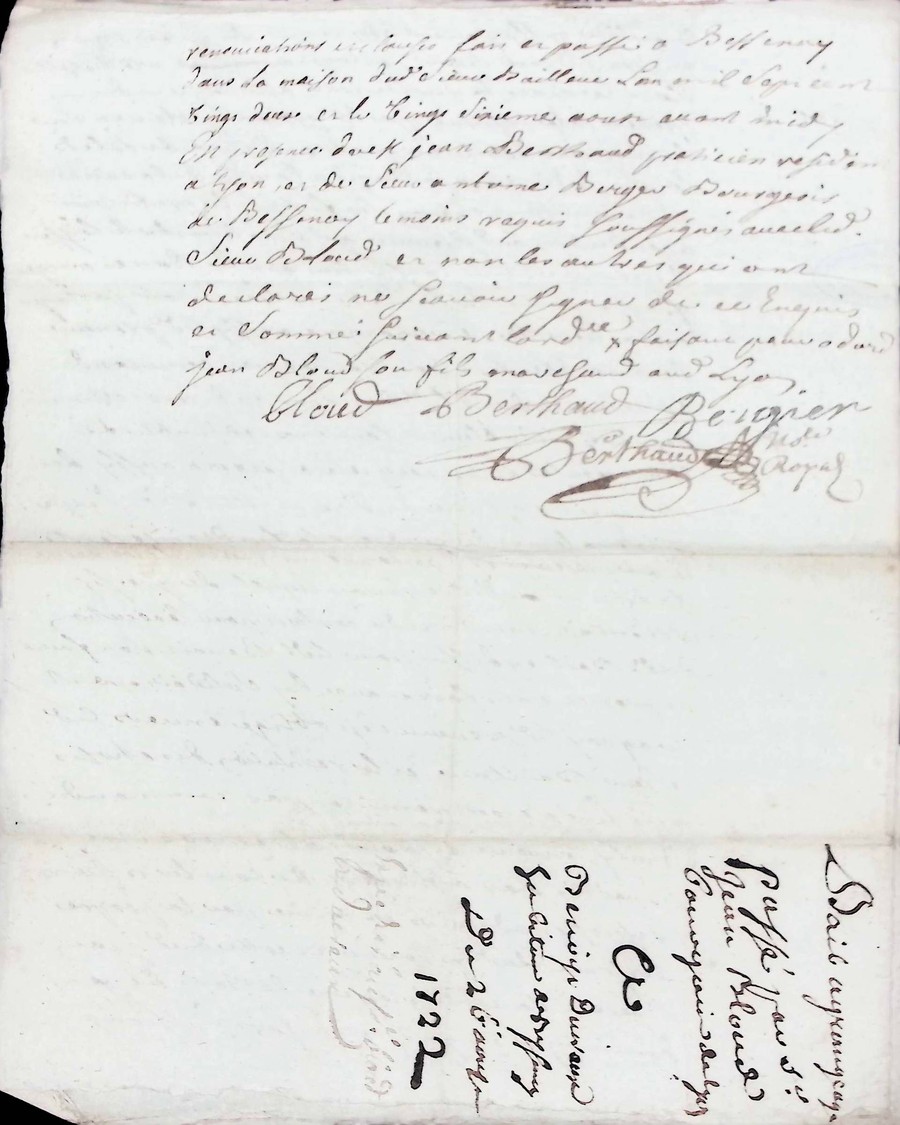 renonciations et clauses fait et passé a Bessenay
dans la maison dud. Sieur Bailleur Lan mil Sept cent
vingt deux et le vingt sixieme aoust avant midy
En presence de Me jean Berthaud praticien residen
a Lyon et de Sieur antoine Berger Bourgeois
de Bessenay temoins requis soussignés avec led.
Sieur Bloud et non les autres qui ont
declarés ne scavoir signer de ce Enquis
et Sommé suivant lord.ce x faisant pour
jean Bloud son fils marchand aud Lyon
Bloud Berthaud Bergier
Berthaud No.re Royal
Bail a
Passé par Sr.
Jean Bloud
Bourgeois de Lyon
A
Benoist Durand
habitant a Bessenay
Du 26 aoust
1722